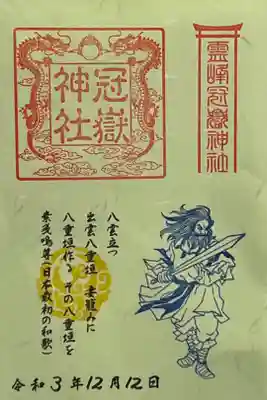 霊峰冠嶽神社
冠嶽
神社
八雲立つ
出雲八重垣 妻籠みに
八重垣作る その八重垣を
素戔嗚尊(日本最初の和歌)
令和3年12月12日